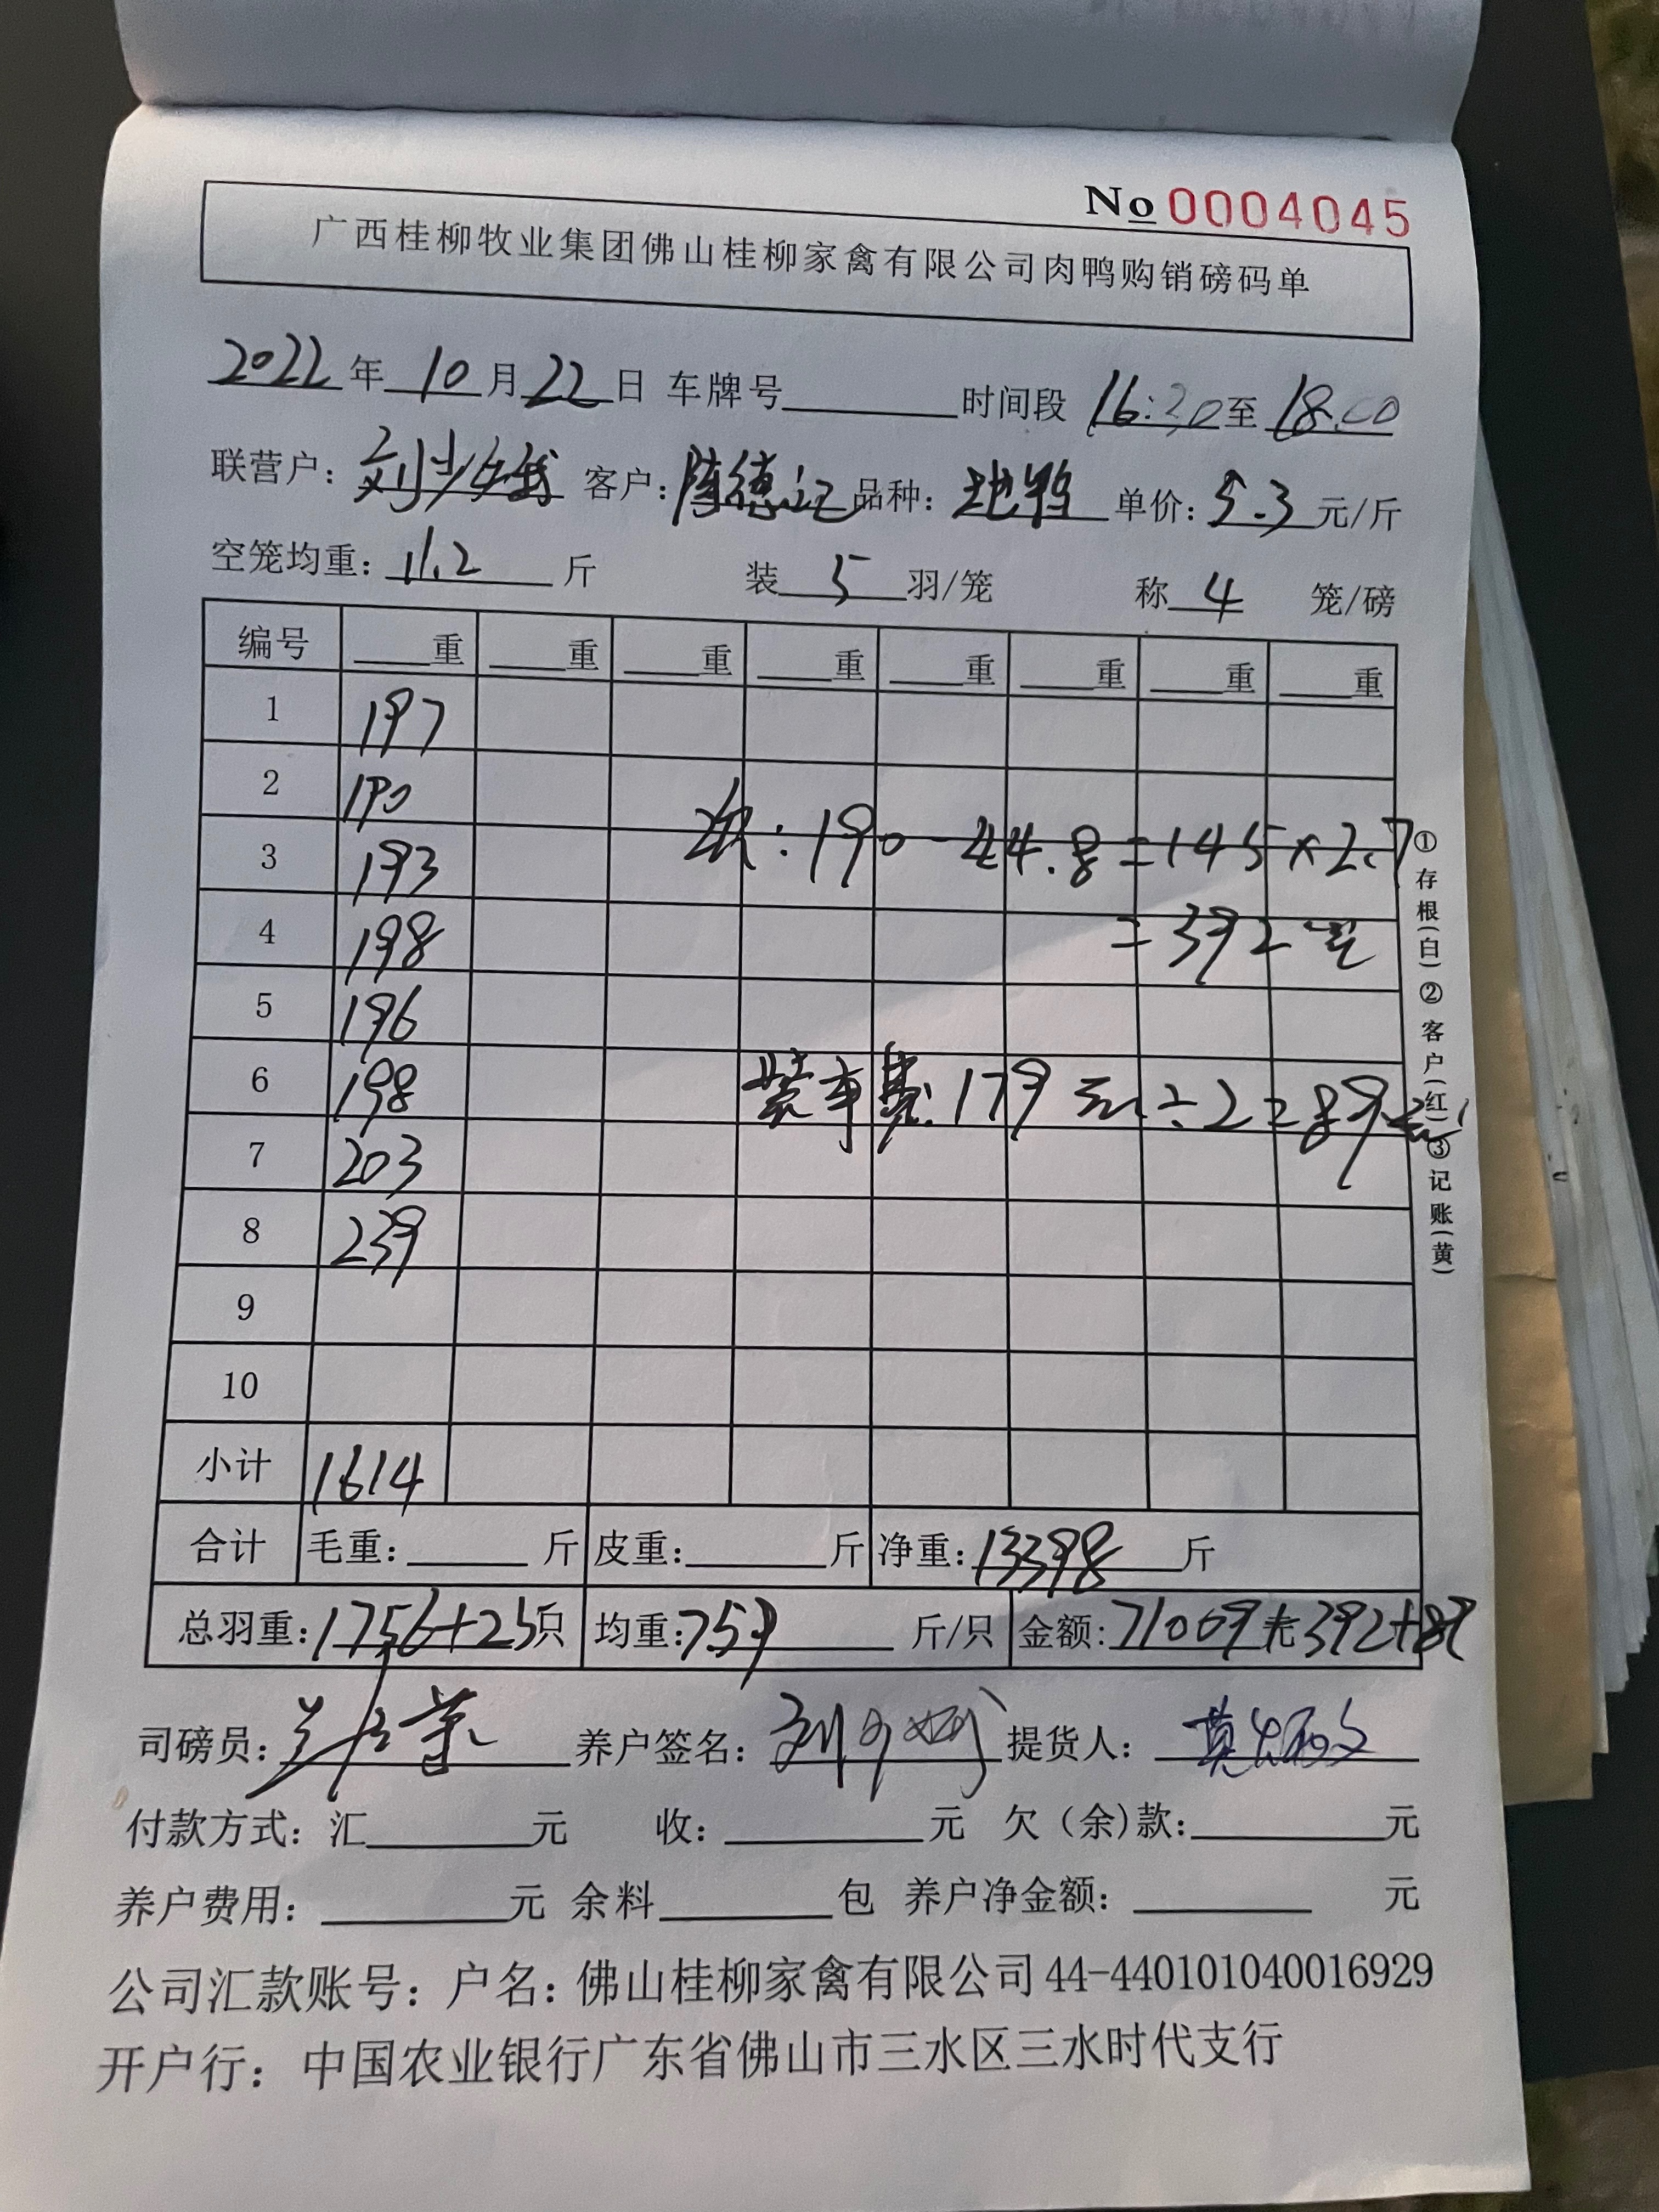 No 0004045
广西桂柳牧业集团佛山桂柳家禽有限公司肉鸭购销磅码单
2022年10月22日 车牌号 时间段 16:30至18.00
联营户: 刘少 客户: 陈德记 品种: 土地鸭 单价: 5.3元/斤
空笼均重: 11.2 斤 装 5 羽/笼 称 4 笼/磅
编号 重 重 重 重 重 重 重 重
1 197
2 190
3 193
4 198
5 196
6 198
7 203
8 239
9
10
: 190-44.8=145×2.7
=392元
装车费: 179元÷2=89元
小计 1614
合计 毛重: 斤 皮重: 斤 净重: 13398 斤
总羽重: 1756+25只 均重: 759 斤/只 金额: 71009元 392+89
司磅员: 养户签名: 提货人:
付款方式: 汇 元 收: 元 欠(余)款: 元
养户费用: 元 余料 包 养户净金额: 元
公司汇款账号: 户名: 佛山桂柳家禽有限公司 44-440101040016929
开户行: 中国农业银行广东省佛山市三水区三水时代支行
①存根(白)②客户(红)③记账(黄)